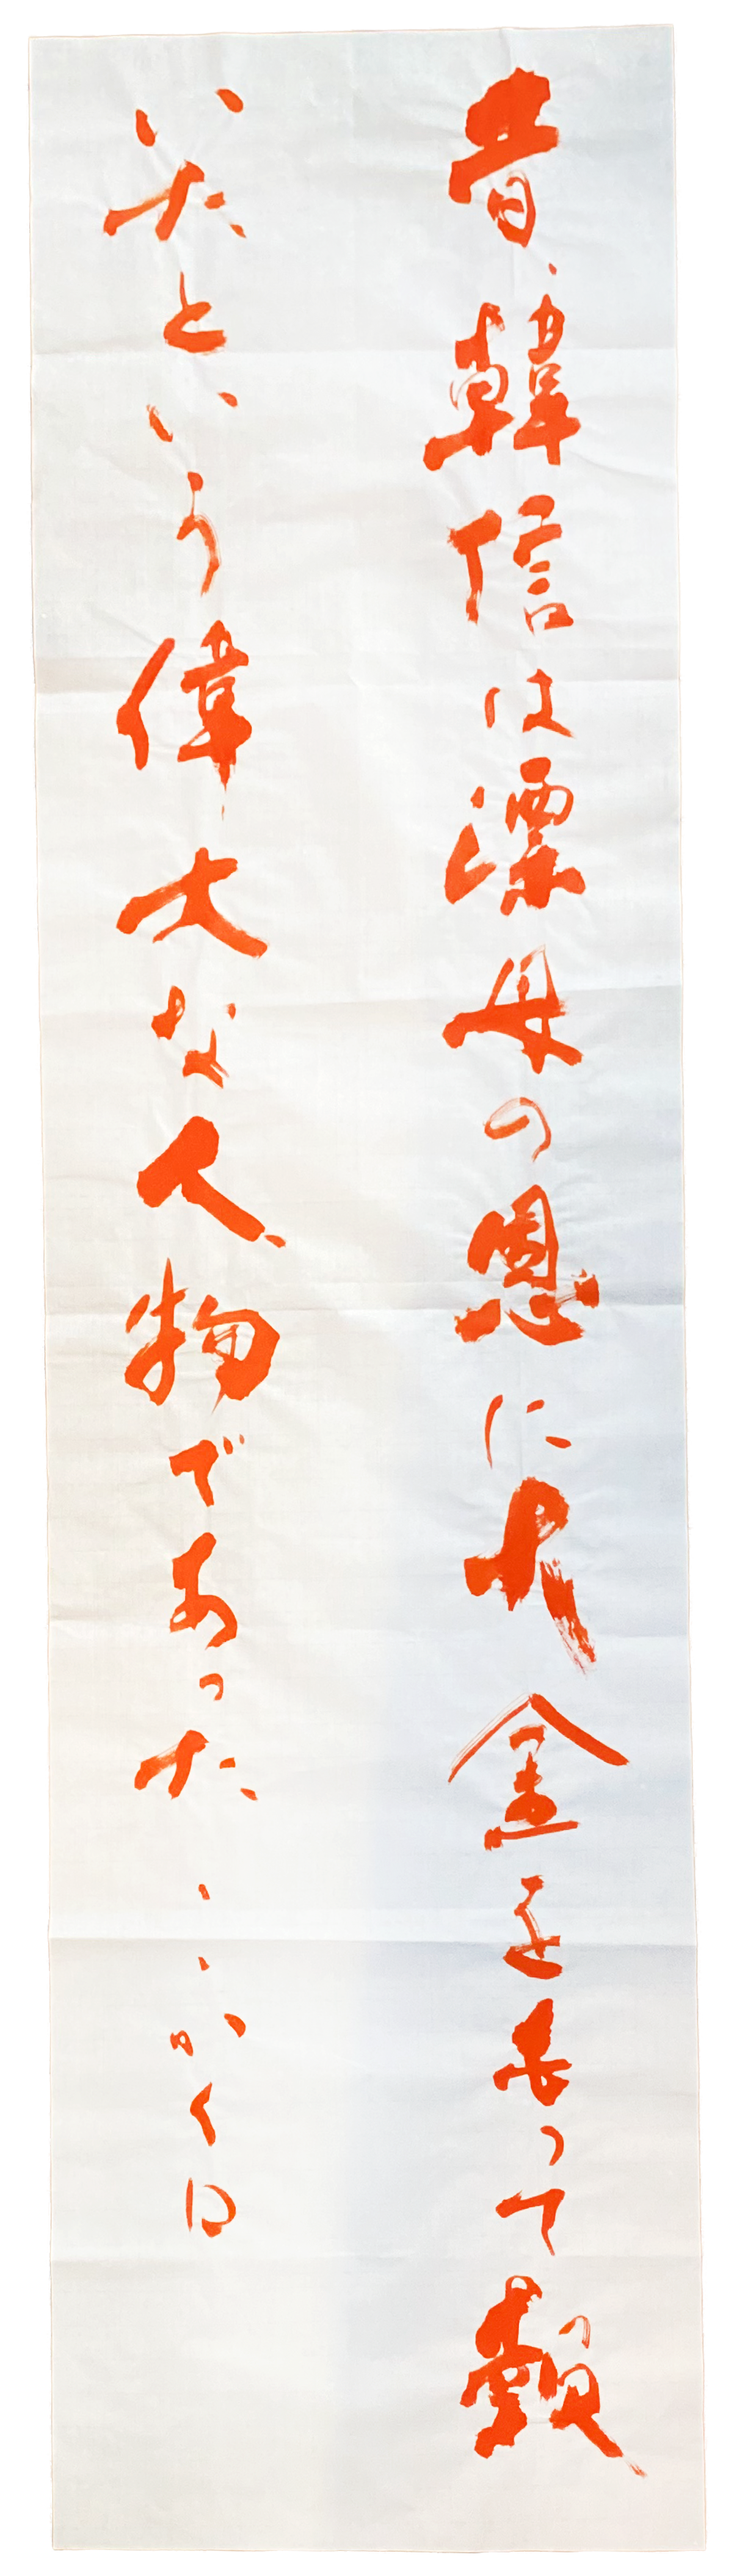 昔、韓信は漂母の恩に大金をもって報
いたという偉大な人物であった